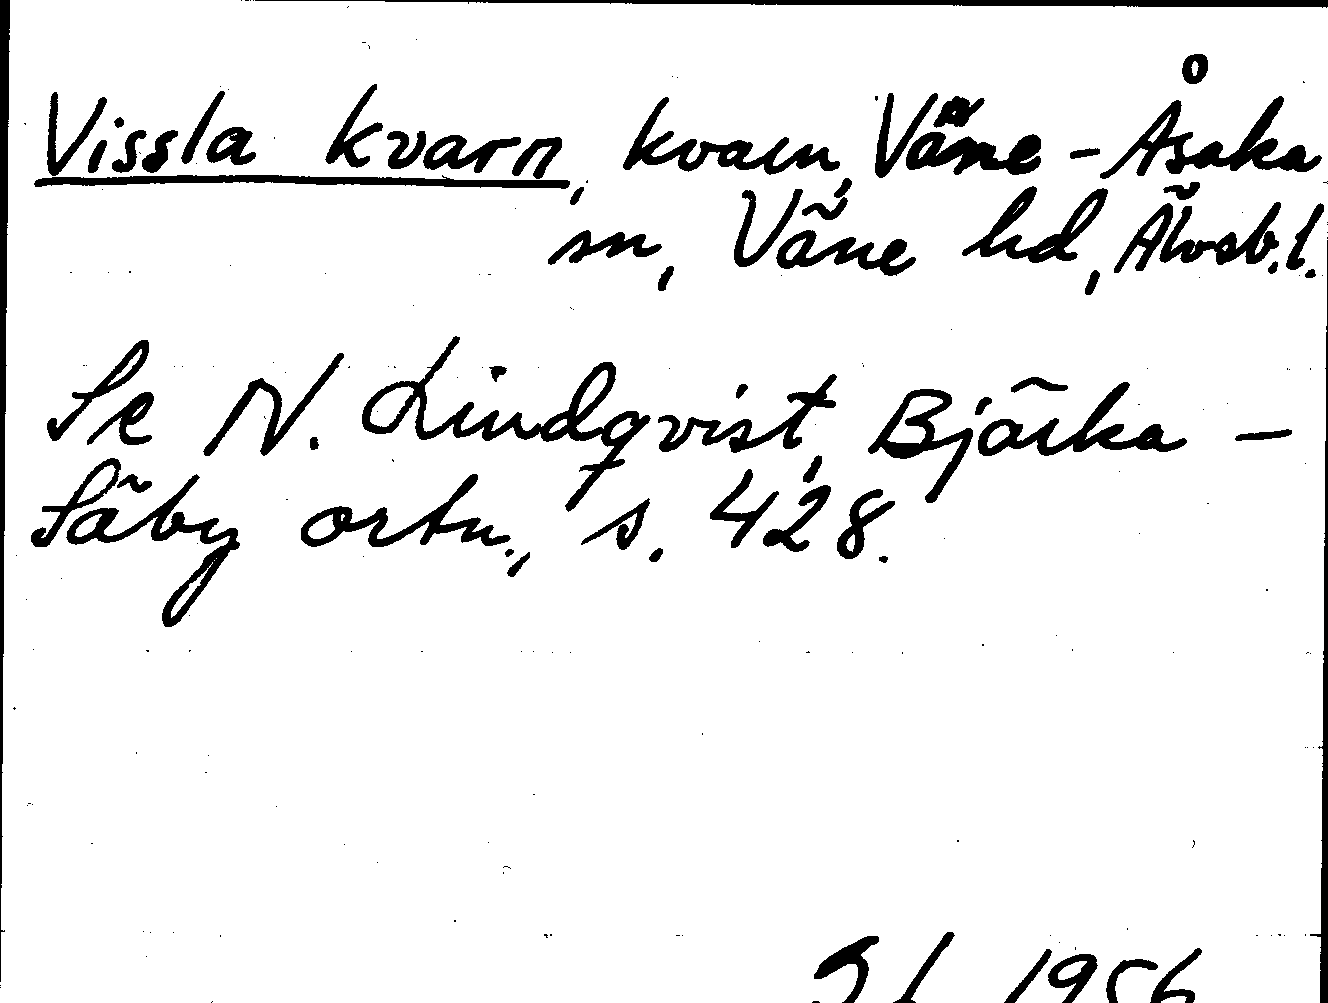 Vissla kvarn, kvarn, Väne-Åsaka
sn, Väne hd, Älvsb.l.
Se N. Lindqvist, Bjärka-
Säby ortn., s. 428.
1956